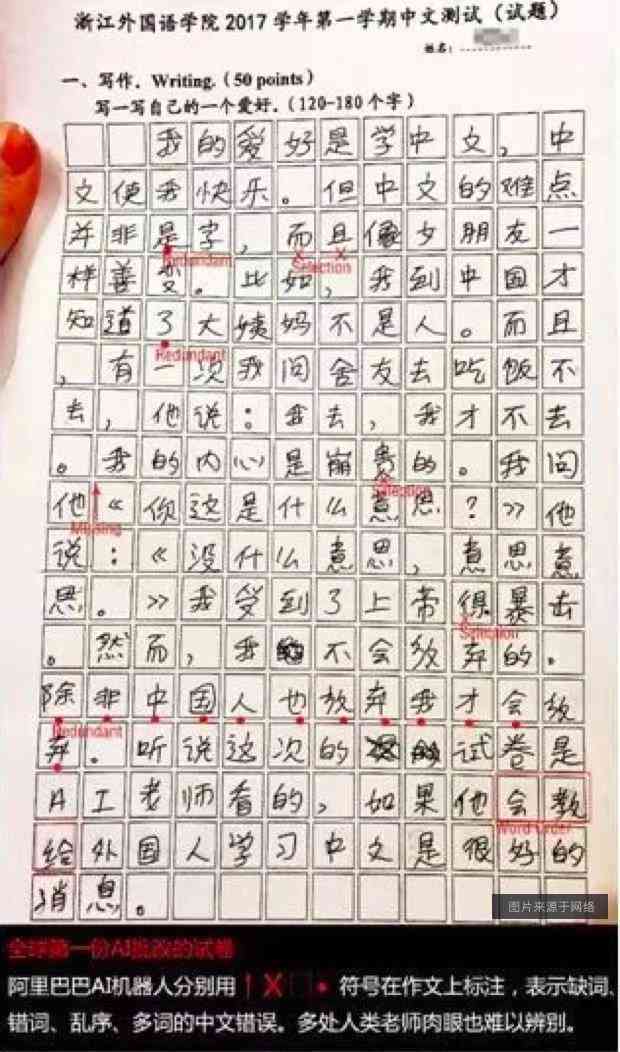 浙江外国语学院2017学年第一学期中文测试（试题）
姓名：
一、写作．Writing.（50 points）
写一写自己的一个爱好．（120-180个字）
我的爱好是学中文，中
文使我快乐。但中文的难点
并非是字，而且像夕朋友一
Redundant Selection
样善变。比如，我到中国才
知道了大姨妈不是人。而且
Redundant
，有一次我问舍友去吃饭不
去，他说：我去，我才不去
。我的内心是崩贵的。我问
Selection
他《你这是什么意思？》他
Missing
说：《没什么意思，意思意
思。》我受到了上帝得暴击
Selection
。然而，我不会放弃的。
除非中国人也放弃我才会放
Redundant
弃。听说这次的试卷是
AI老师看的，如果他会教
Word Order
给外国人学习中文是很好的
消息。
图片来源于网络
全球第一份AI批改的试卷
阿里巴巴AI机器人分别用↑X□•符号在作文上标注，表示缺词、
错词、乱序、多词的中文错误。多处人类老师肉眼也难以辨别。